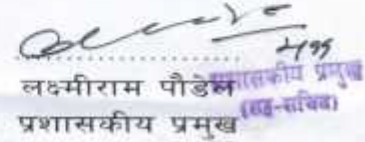 लक्ष्मीराम पौडेल
प्रशासकीय प्रमुख
प्रशासकीय प्रमुख
(सह-सचिव)